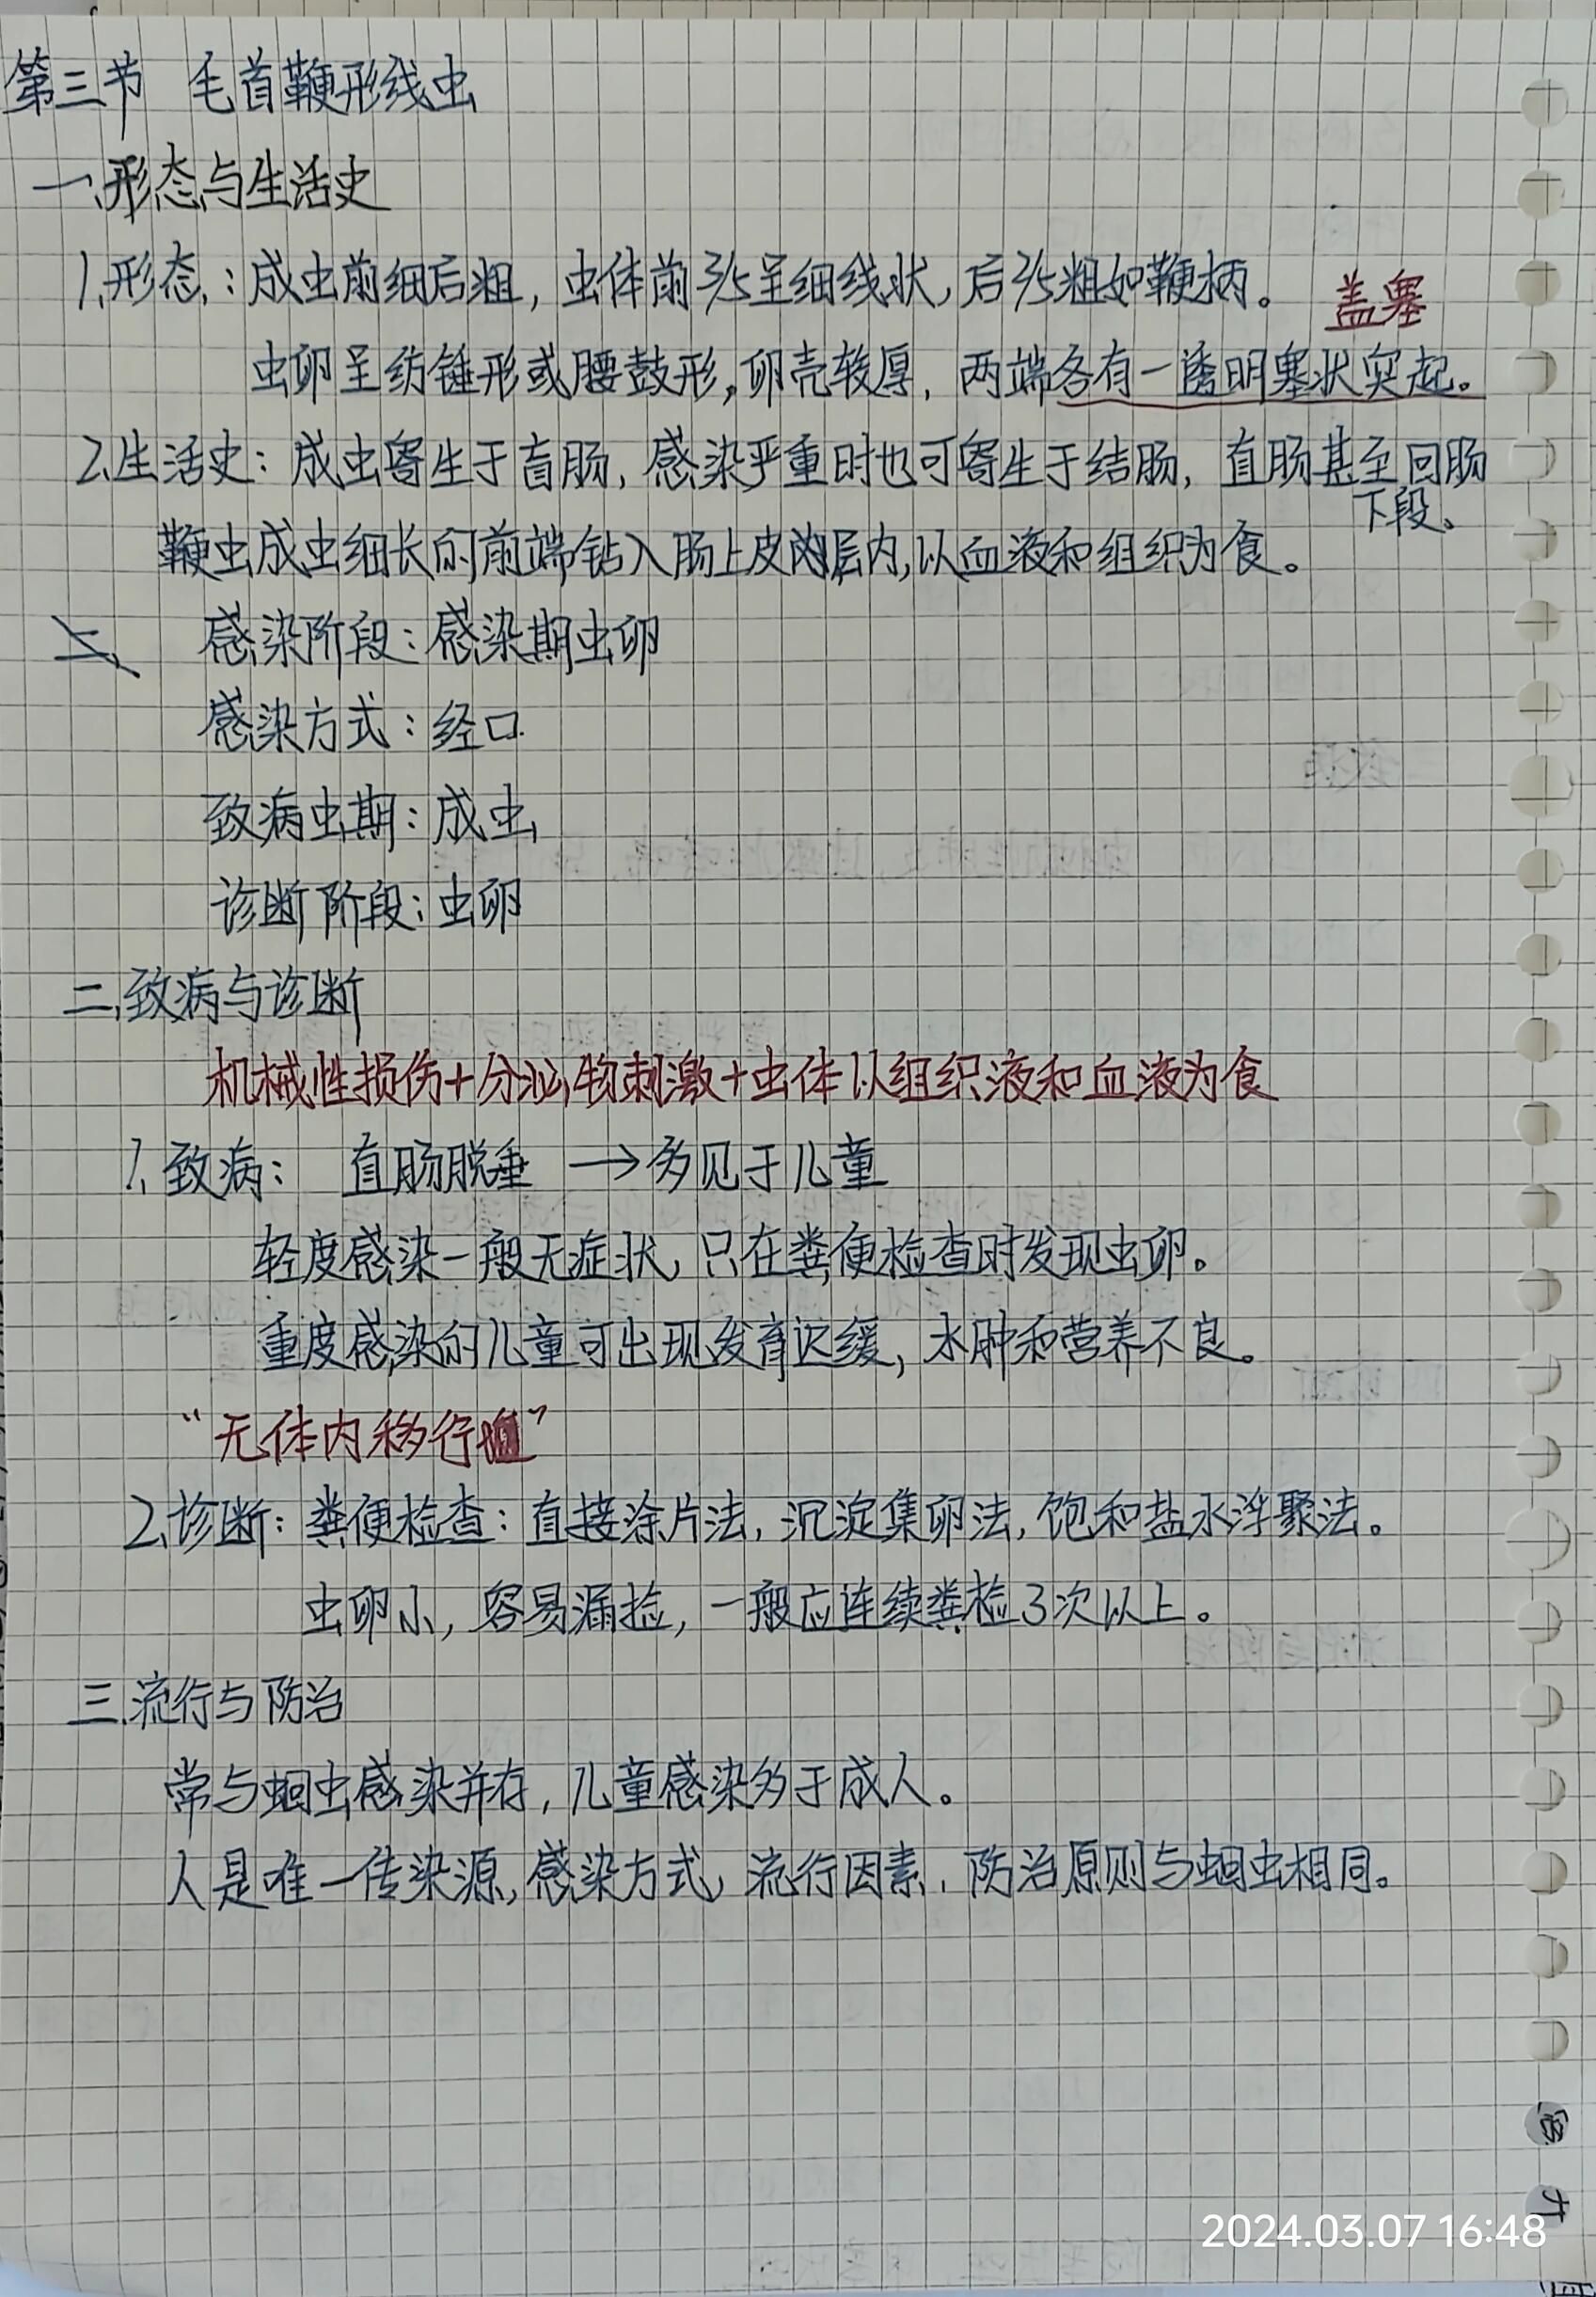 第三节 毛首鞭形线虫
一、形态与生活史
1、形态：成虫前细后粗，虫体前3/5呈细线状，后2/5粗如鞭柄。
盖塞
虫卵呈纺锤形或腰鼓形，卵壳较厚，两端各有一透明塞状突起。
2、生活史：成虫寄生于盲肠，感染严重时也可寄生于结肠，直肠甚至回肠
下段、
鞭虫成虫细长的前端钻入肠上皮层内，以血液和组织为食。
感染阶段：感染期虫卵
感染方式：经口
致病虫期：成虫
诊断阶段：虫卵
二、致病与诊断
机械性损伤+分泌物刺激+虫体以组织液和血液为食
1、致病： 直肠脱垂 →多见于儿童
轻度感染一般无症状，只在粪便检查时发现虫卵。
重度感染的儿童可出现发育迟缓，水肿和营养不良。
“无体内移行”
2、诊断：粪便检查：直接涂片法，沉淀集卵法，饱和盐水浮聚法。
虫卵小，容易漏捡，一般应连续粪检3次以上。
三、流行与防治
常与蛔虫感染并存，儿童感染多于成人。
人是唯一传染源，感染方式，流行因素、防治原则与蛔虫相同。
2024.03.07 16:48